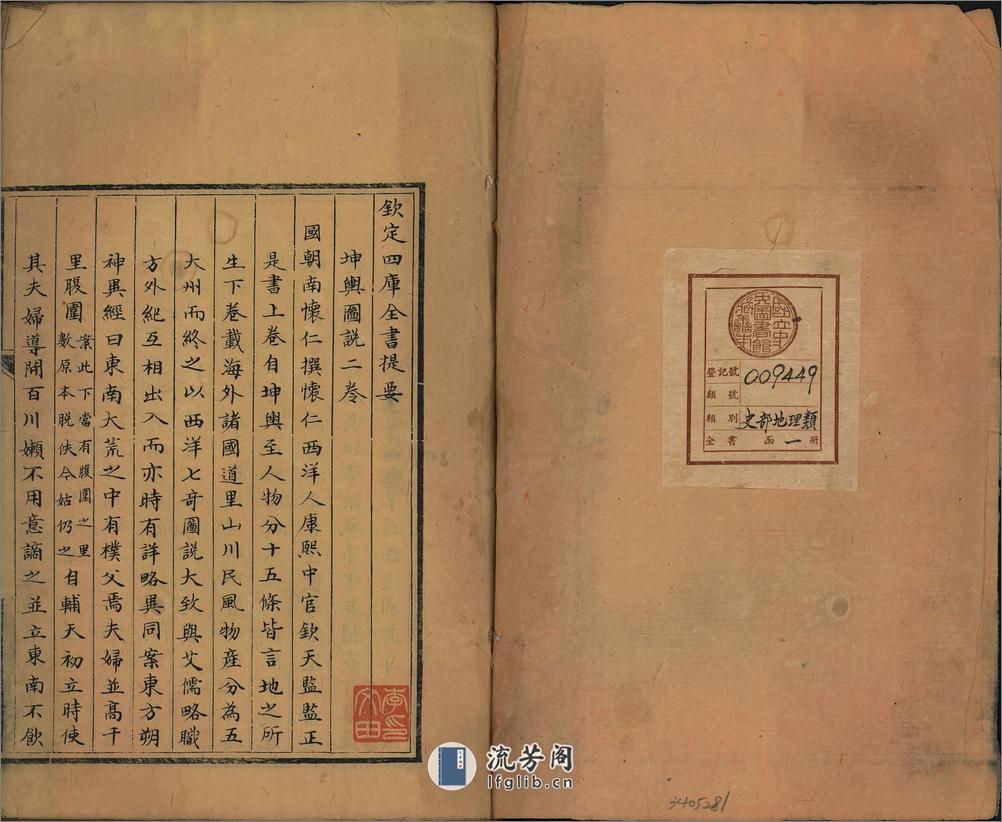 欽定四庫全書提要
坤輿圖說二卷
國朝南懷仁撰懷仁西洋人康熙中官欽天監監正
是書上卷自坤輿至人物分十五條皆言地之所
生下卷載海外諸國道里山川民風物產分為五
大州而終之以西洋七奇圖說大致與艾儒略職
方外紀互相出入而亦時有詳略異同案東方朔
神異經曰東南大荒之中有樸父焉夫婦並高千
里腹圍
案此下當有腹圍之里
數原本脫佚今姑仍之
自輔天初立時使
其夫婦導開百川嬾不用意謫之並立東南不飲
李印
文田
國立中
央圖書館
登記號 009449
類號
類別 史部地理類
全書 函 一 冊
3405281
流芳阁
lfglib.cn